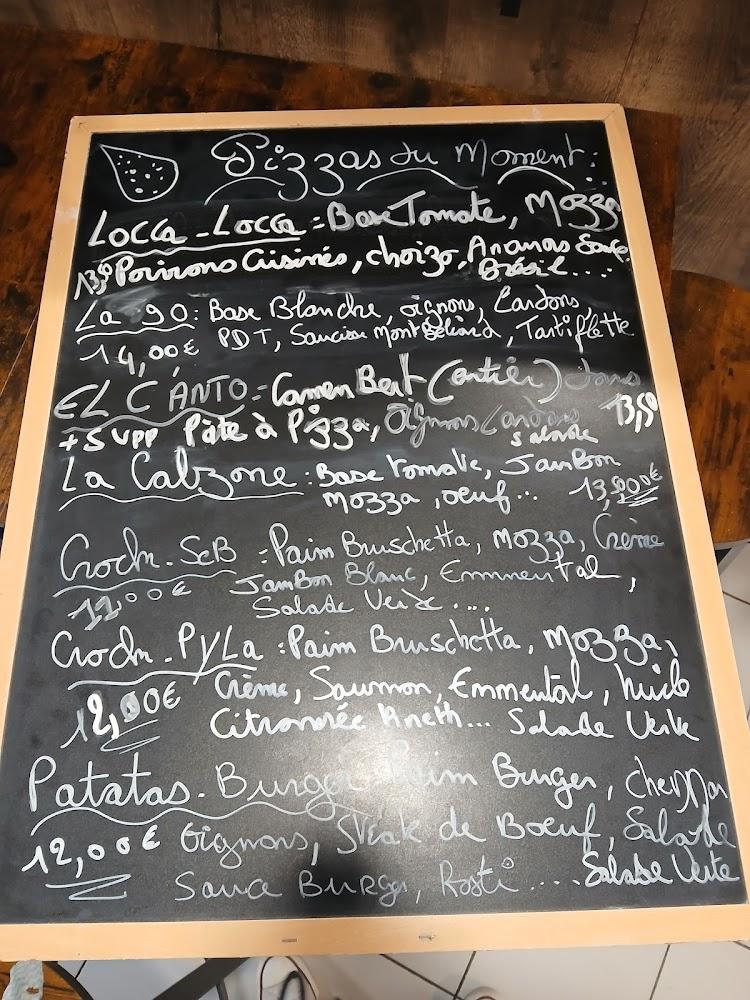 Pizzas du Moment :
Locca-Locca : Base Tomate, Mozza
13,50 Poivrons Cuisinés, choizo, Ananas Sauce
Brésil....
La 90 : Base Blanche, oignons, Lardons
14,00€ PDT, Saucisse Montbéliard, Tartiflette
EL CANTO = Camen Bert (entier) dans 13,50
+ Supp Pâte à Pizza, Oignons Lardons
salade
La Calzone : Base tomate, JamBon
Mozza, oeuf... 13,00€
Crock. SEB : Paim Bruschetta, mozza, Crème
JamBon Blanc, Emmental,
Salade Verte....
Crock. PyLa : Paim Bruschetta, mozza,
12,00€ Crème, Saumon, Emmental, huile
Citronnée Aneth... Salade Verte
Patatas. Burger Paim Burger, cheddar
12,00€ Oignons, Steak de Boeuf, Salade
Sauce Burger, Rosti .... Salade Verte